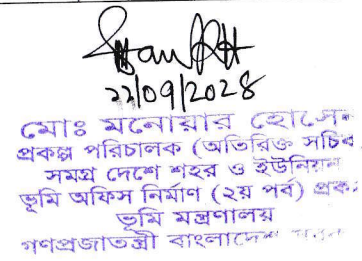 ২২/০৭/২০২৪
মোঃ মনোয়ার হোসে
প্রকল্প পরিচালক (অতিরিক্ত সচিব
সমগ্র দেশে শহর ও ইউনিয়ন
ভূমি অফিস নির্মাণ (২য় পর্ব) প্রক
ভূমি মন্ত্রণালয়
গণপ্রজাতন্ত্রী বাংলাদেশ